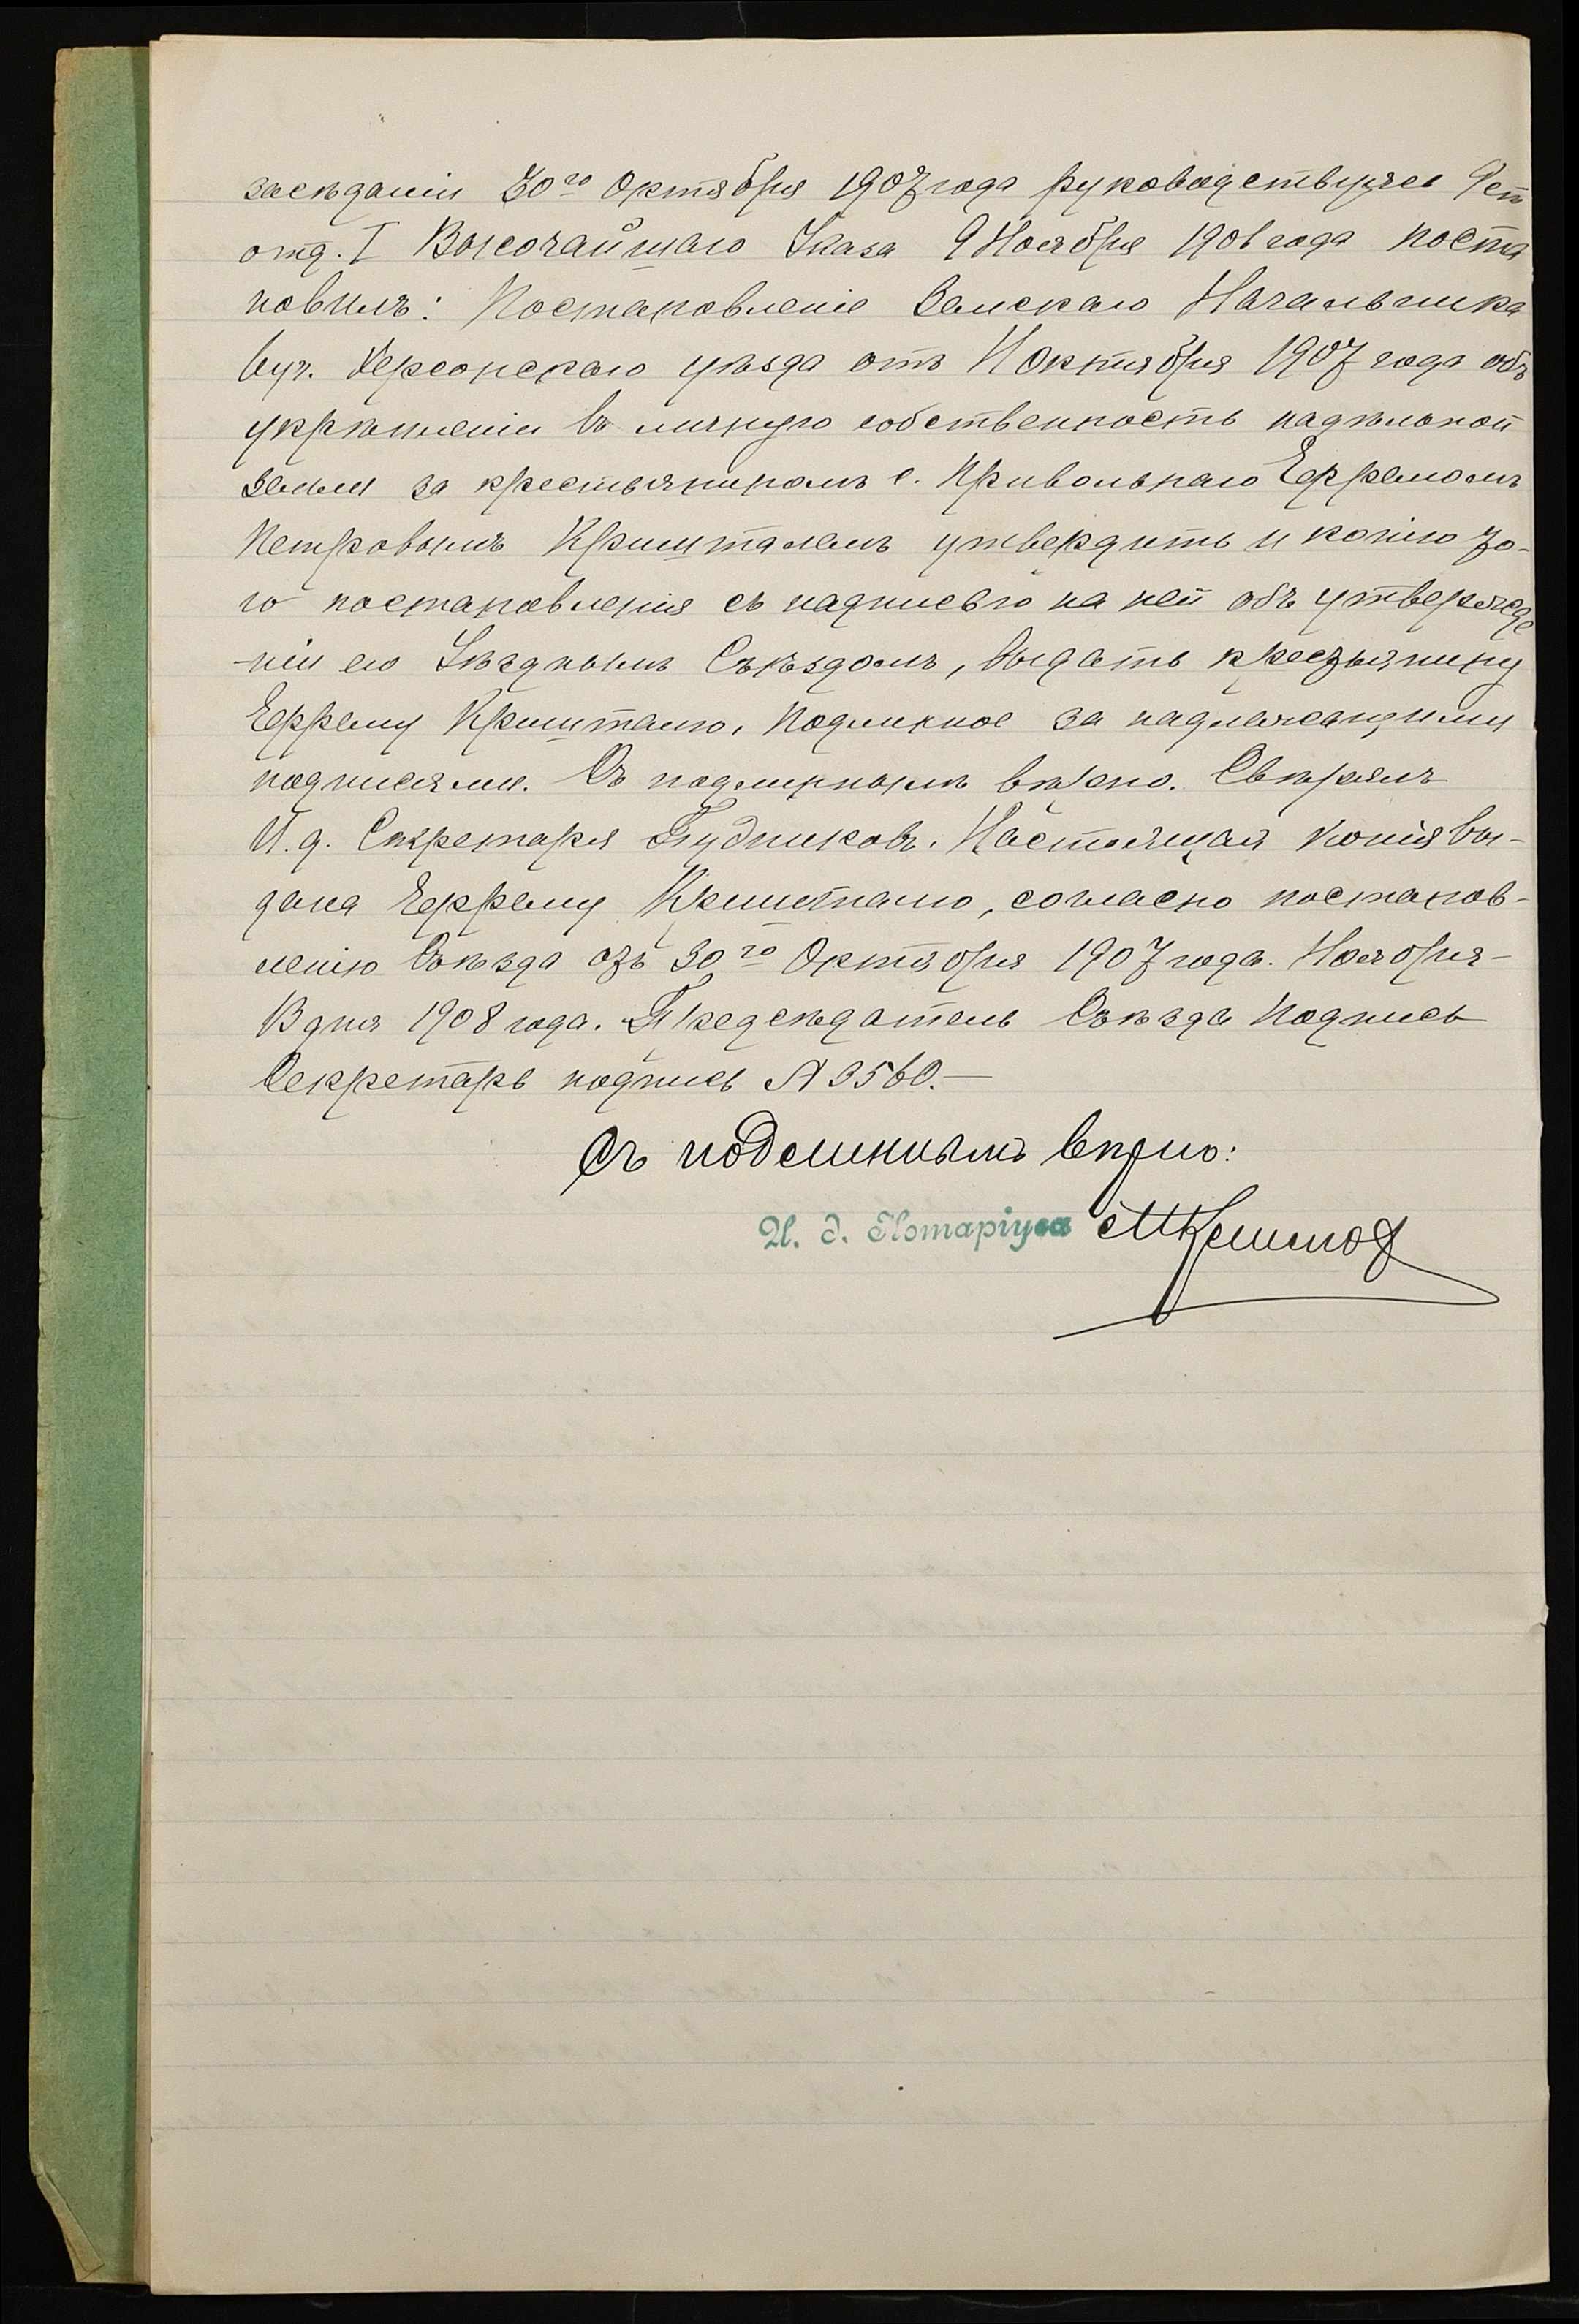 засѣданіи 30го Октября 1907 года руководствуясь 9 ст
отд. I Высочайшаго Указа 9 Ноября 1906 года поста
новилъ: Постановленіе Земскаго Начальника
6 уч. Херсонскаго уѣзда отъ 11 Октября 1907 года объ
укрѣпленіи въ личную собственность надѣльной
земли за крестьяниномъ с. Привольнаго Ефремомъ
Петровымъ Кришталемъ утвердить и копію то-
го постановленія съ надписью на ней объ утвержде
-ніи его Уѣзднымъ Съѣздомъ, выдать крестьянину
Ефрему Кришталю. Подлинное за надлежащими
подписями. Съ подлиннымъ вѣрно. Свѣрялъ
И. д. Секретаря Прудниковъ. Настоящая копія вы-
дана Ефрему Кришталю, согласно постанов-
ленію Съѣзда отъ 30го Октября 1907 года. Ноября
13 дня 1908 года. Предсѣдатель Съѣзда Подпись
Секретарь подпись № 3560.—
Съ подлиннымъ вѣрно:
И. д. Нотаріуса